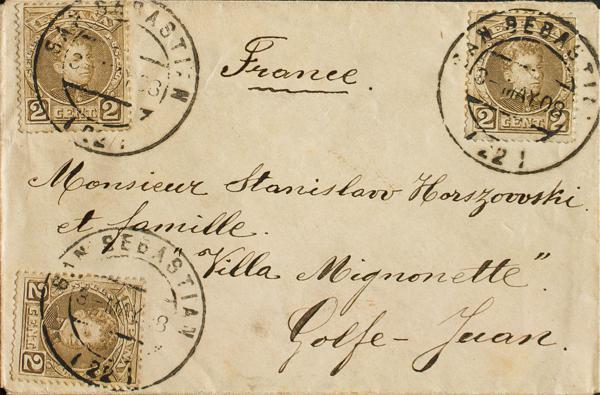 SAN SEBASTIAN
2 CENT. 2
221
France.
SAN SEBASTIAN
MAY 08
2 CENT. 2
221
Monsieur Stanislaw Horszowski
et famille.
"Villa Mignonette"
Golfe-Juan.
SAN SEBASTIAN
2 CENT. 2
221